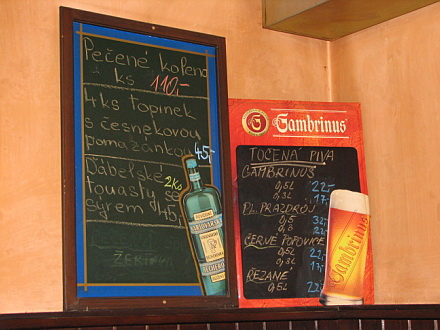 Pečené koleno
1 ks 110,-
4 ks topinek
s česnekovou
pomazánkou 45,-
Ďábelské
touasty se 2ks
sýrem 45,-
Gambrinus
TOČENÁ PIVA
GAMBRINUS
0,5L 22,-
0,3L 17,-
PL. PRAZDROJ
0,5 32,-
0,3 22,-
ČERVÉ POPOVICE
0,5L 22,-
0,3L 17,-
ŘEZANÉ
0,5L 22,-
Gambrinus